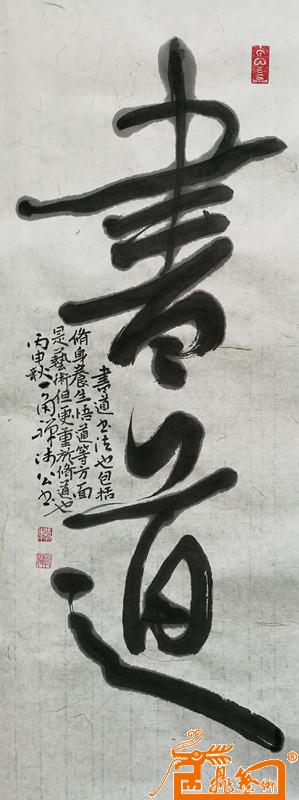 書道
書道書法也包括
脩身養生悟道等方面
是藝術但更重於脩道也
丙申秋一角禪沛公書